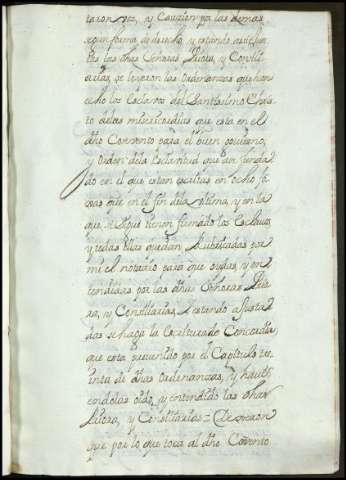 taron voz, y Caucion por las demas,
segun forma de derecho, y estando assi jun
tas las dhas Señoras Priora, y Consili
arias, se leyeron las Ordenanzas que han
echo los Esclavos del Santissimo Chris
to de las misericordias que esta en el
dho Convento para el buen govierno,
y orden de la Esclavitud que an funda
do en el que estan escritas en ocho fo
xas que en el fin de la vltima, y en la
que se sigue tienen firmado los Esclavos
y todas ellas quedan Rubricadas por
mi el notario para que oydas, y en
tendidas por las dhas Señoras Prio
ra, y Consiliarias, estando ajusta
das se haga la escritura de Concordia
que esta prevenido por el Capitulo tre
inta de dhas ordenanzas, y havi
endolas oido, y entendido las dhas
Priora, y Consiliarias = Dixeron
que por lo que toca al dho Convento